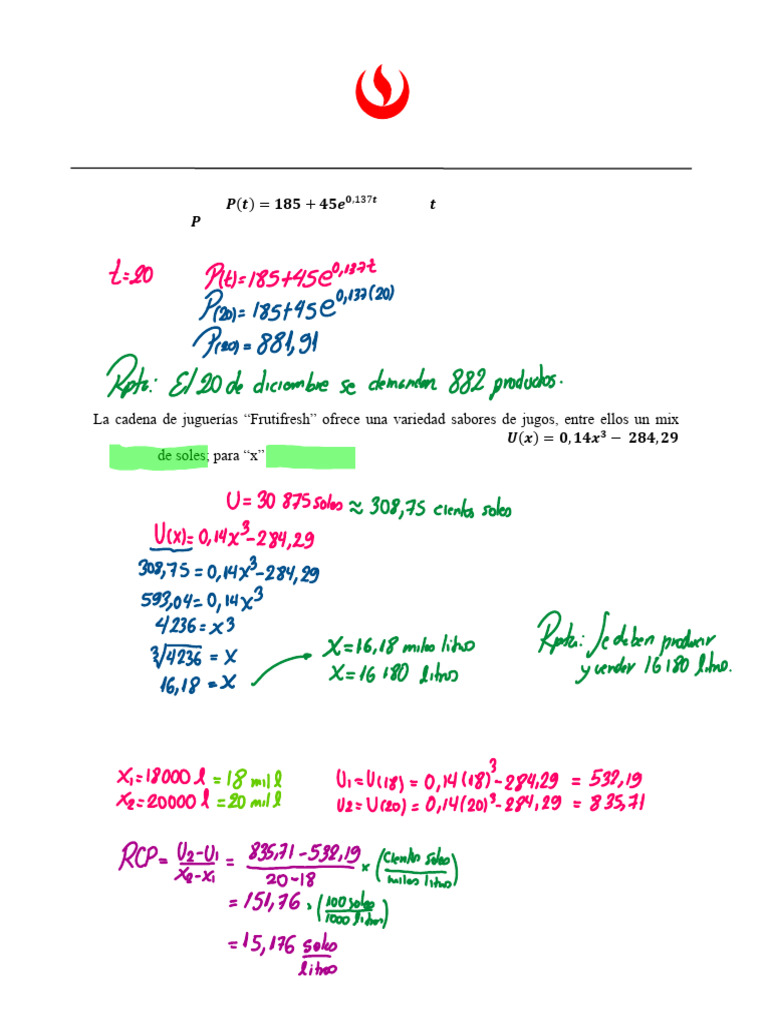 P(t) = 185 + 45e^0,137t t
P
t=20 P(t)=185+45e^0,137t
P(20)=185+45e^0,137(20)
P(20)=881,91
Rpta: El 20 de diciembre se demandan 882 productos.
La cadena de juguerías “Frutifresh” ofrece una variedad sabores de jugos, entre ellos un mix
U(x) = 0,14x³ − 284,29
de soles; para “x”
U=30 875 soles ≈ 308,75 cientos soles
U(x)=0,14x³-284,29
308,75=0,14x³-284,29
593,04=0,14x³
4236=x³
∛4236 = x
16,18 = x
x=16,18 miles litros
x=16 180 litros
Rpta: Se deben producir
y vender 16 180 litros.
x₁=18000 l = 18 mil l U₁=U(18)=0,14(18)³-284,29 = 532,19
x₂=20000 l = 20 mil l U₂=U(20)=0,14(20)³-284,29 = 835,71
RCP = U₂-U₁/x₂-x₁ = 835,71-532,19/20-18 × (cientos soles/miles litros)
= 151,76 · (100 soles/1000 litros)
= 15,176 soles/litros